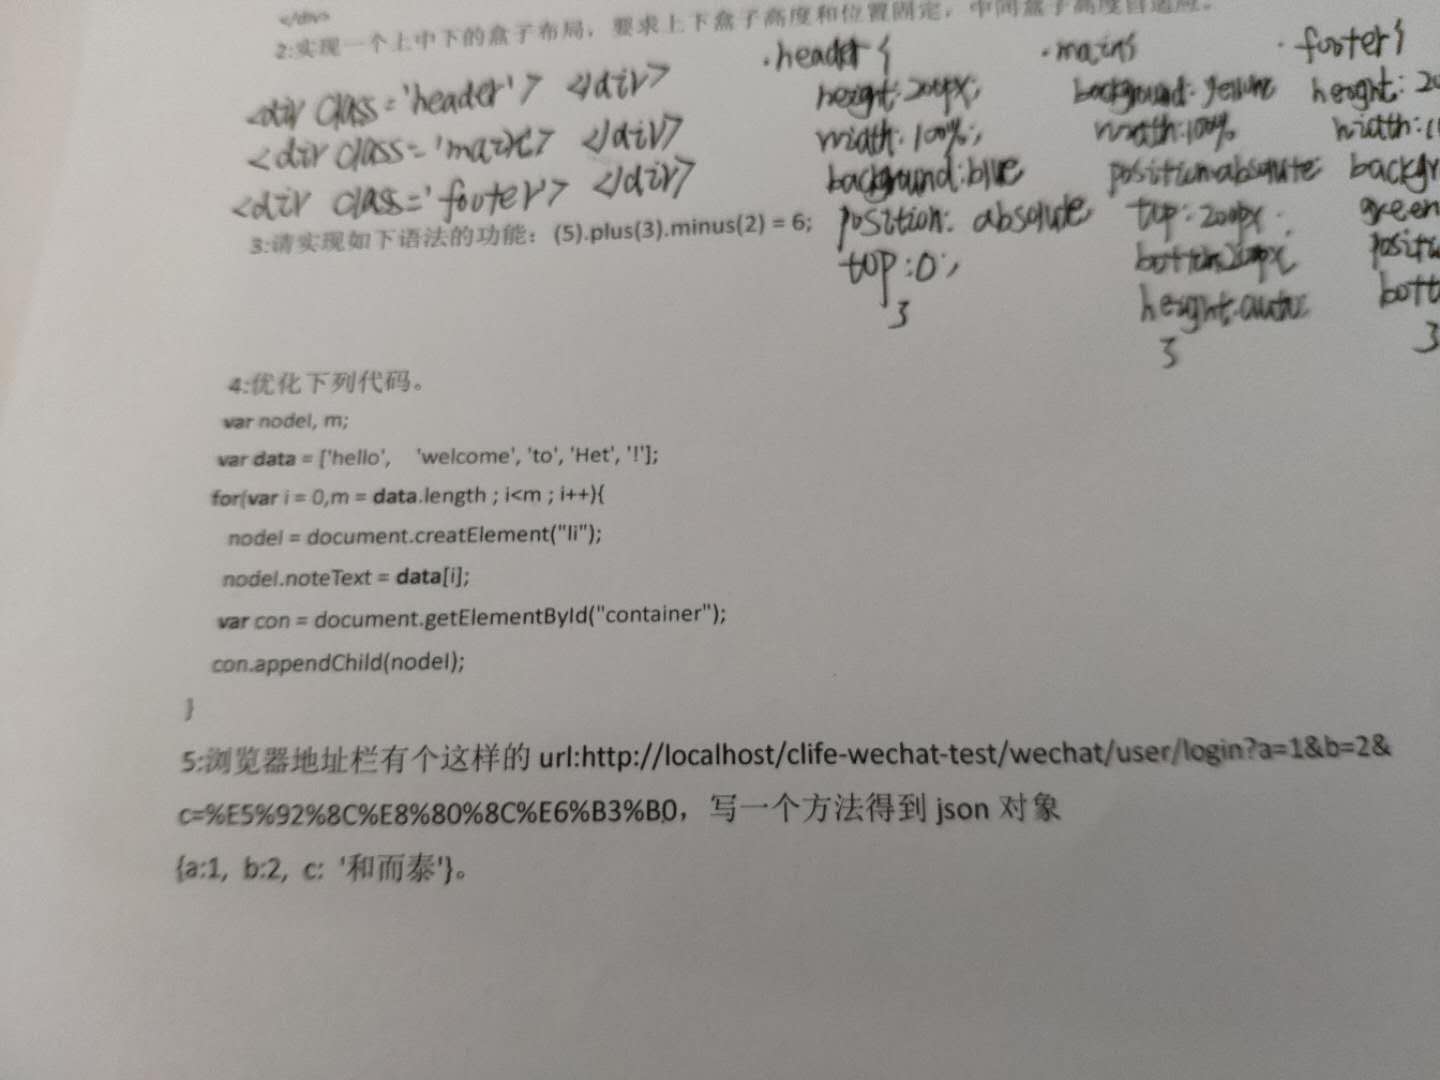 </div>
2:实现一个上中下的盒子布局，要求上下盒子高度和位置固定，中间盒子高度自适应。
<div class='header'> </div>
<div class='main'> </div>
<div class='footer'> </div>
.header{
height:200px;
width:100%;
background:blue
position: absolute
top:0;
}
.main{
background:yellow
width:100%
position:absolute
top:200px;
bottom:200px
height:auto
}
.footer{
height: 20
width:1
backgr
green
positi
bott
}
3:请实现如下语法的功能：(5).plus(3).minus(2) = 6;
4:优化下列代码。
var nodel, m;
var data = ['hello', 'welcome', 'to', 'Het', '!'];
for(var i = 0,m = data.length ; i<m ; i++){
nodel = document.creatElement("li");
nodel.noteText = data[i];
var con = document.getElementById("container");
con.appendChild(nodel);
}
5:浏览器地址栏有个这样的 url:http://localhost/clife-wechat-test/wechat/user/login?a=1&b=2&
c=%E5%92%8C%E8%80%8C%E6%B3%B0，写一个方法得到 json 对象
{a:1, b:2, c: '和而泰'}。